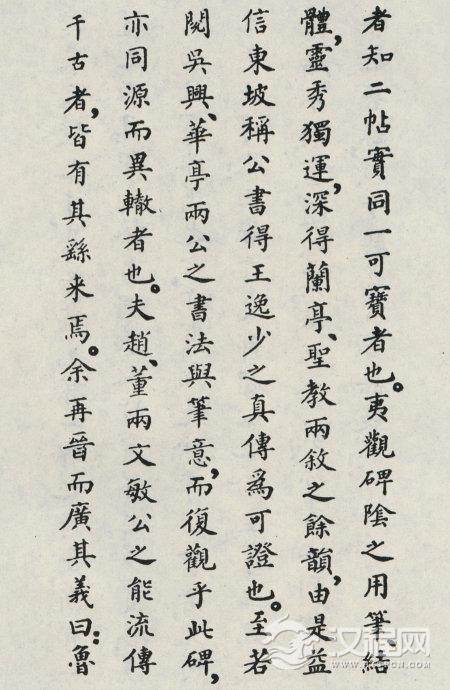 者知二帖實同一可寶者也。夷觀碑陰之用筆、結
體，靈秀獨運，深得蘭亭、聖教兩敘之餘韻，由是益
信東坡稱公書得王逸少之真傳爲可證也。至若
閱吳興、華亭兩公之書法與筆意，而復觀乎此碑，
亦同源而異轍者也。夫趙、董兩文敏公之能流傳
千古者，皆有其繇来焉。余再晉而廣其義曰：魯
汉程网